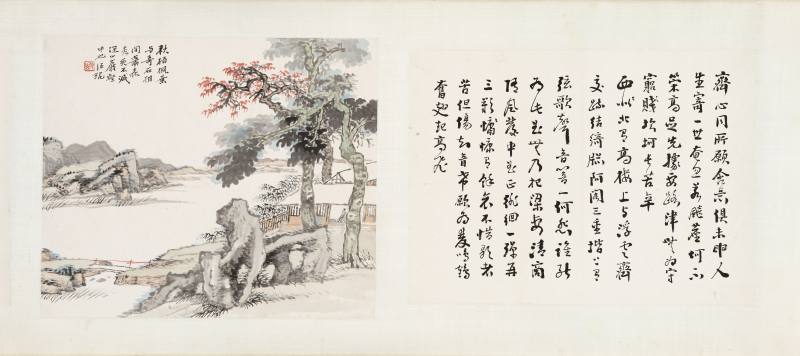 齊心同所願含意俱未申人
生寄一世奄忽若飆塵何不
策高足先據要路津無為守
窮賤坎坷長苦辛
西北有高樓上與浮雲齊
交疏結綺牕阿閣三重階上有
弦歌聲音響一何悲誰能
為此曲無乃杞梁妻清商
隨風發中曲正徘徊一彈再
三歎慷慨有餘哀不惜歌者
苦但傷知音希願為雙鳴鶴
奮翅起高飛
秋梧楓葉
与奇石相
間蕭森
不減
深山巖壑
中也汪琨